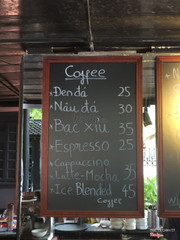 Coffee
Đen đá 25
Nâu đá 30
Bạc xỉu 35
Espresso 25
Cappuccino
Latte-Mocha 35
Ice Blended 45
coffee